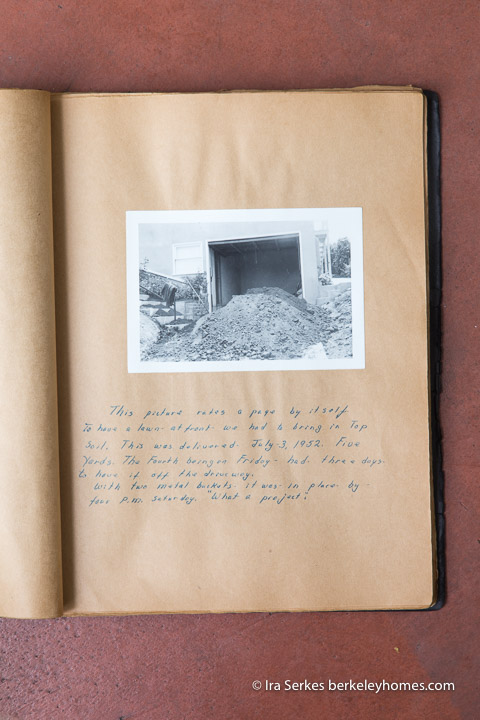 This picture rates a page by itself
To have a lawn at front we had to bring in Top
Soil. This was delivered July-3, 1952. Five
Yards. The Fourth being on Friday- had three days
to have it off the driveway.
With two metal buckets it was in place by
four P.M. Saturday. "What a project".
© Ira Serkes berkeleyhomes.com